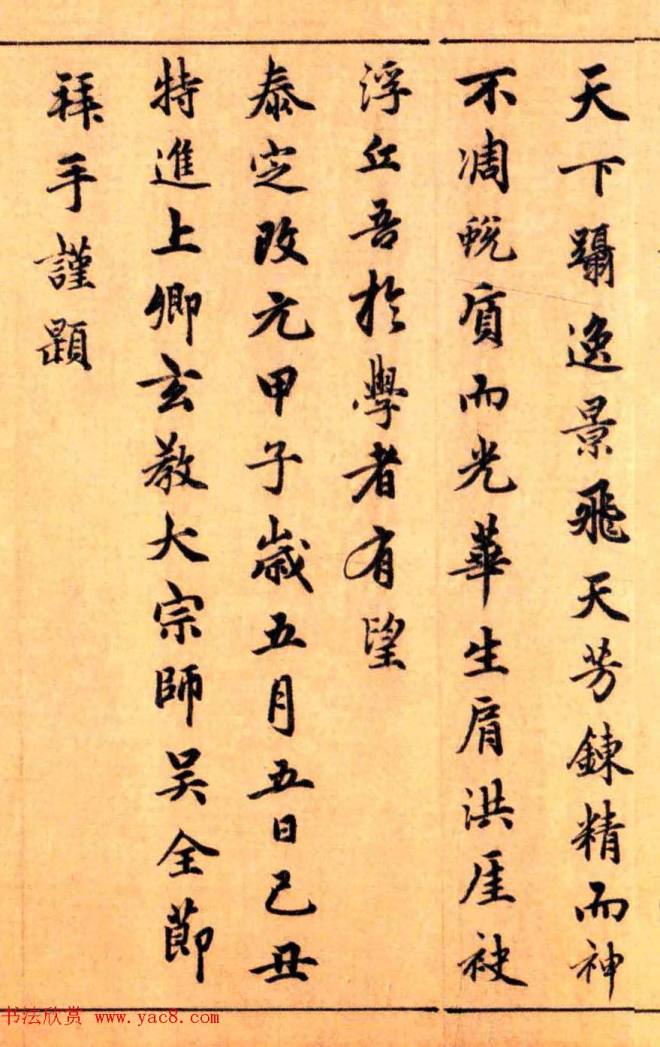 天下躡逸景飛天芳鍊精而神
不凋蛻質而光華生肩洪厓袂
浮丘吾於學者有望
泰定改元甲子歲五月五日己丑
特進上卿玄教大宗師吳全節
拜手謹題
书法欣赏 www.yac8.com